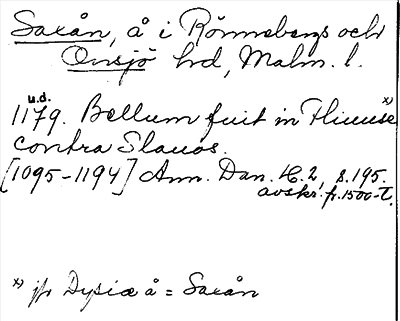 Saxån, å i Rönnebergs och
Onsjö hrd, Malm. l.
u.d.
1179. Bellum fuit in Fliuuse x)
contra Slauos.
[1095-1194] Ann. Dan. H. 2, s. 195.
avskr. fr. 1500-t.
x) jfr Dysiæ å = Saxån